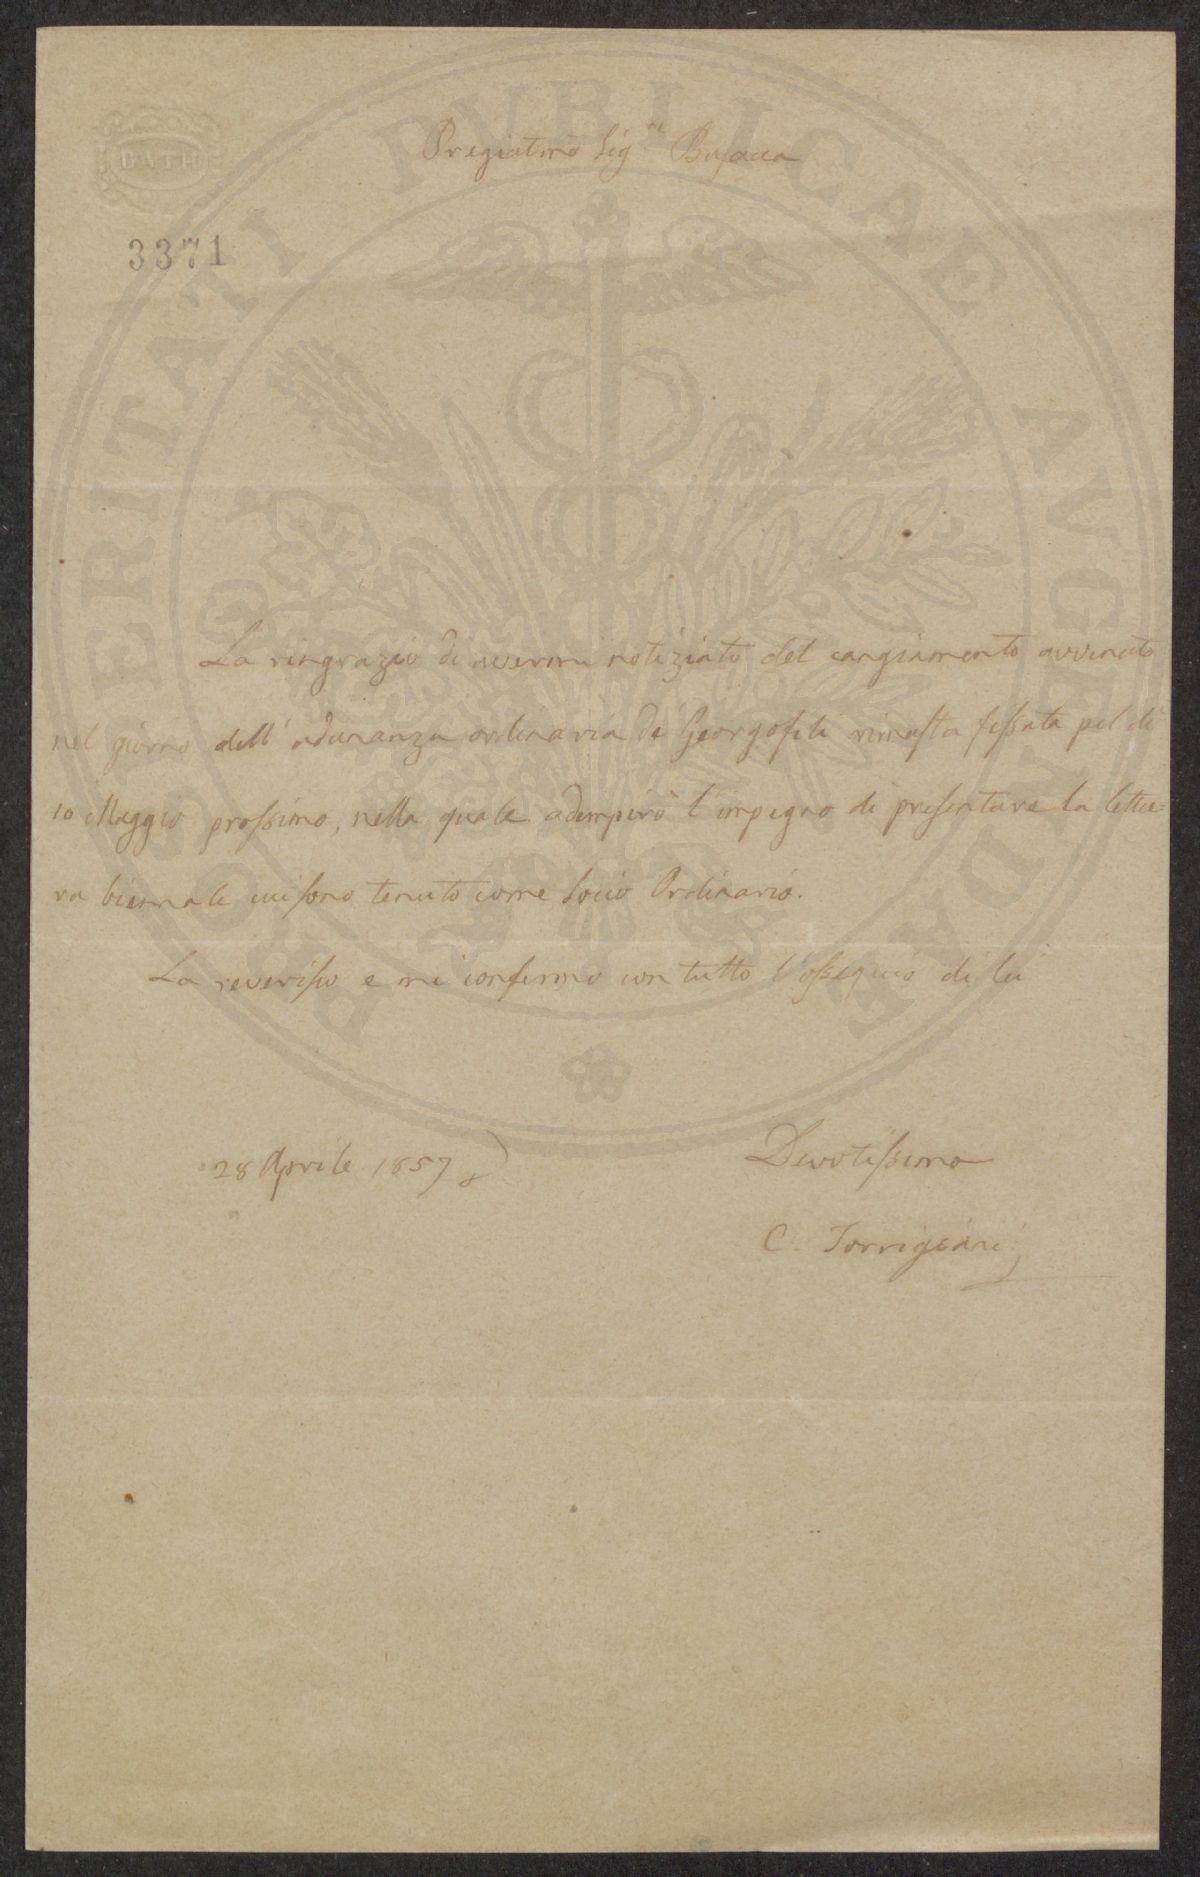 BATH
Pregiatmo Sigre Busacca
3371
La ringrazio di avermi notiziato del cangiamento avvenuto
nel giorno dell' adunanza ordinaria de Georgofili rimasta fissata pel dì
10 Maggio prossimo, nella quale adempirò l'impegno di presentare la lettu=
ra biennale cui sono tenuto come Socio Ordinario.
La reverisco e mi confermo con tutto l'ossequio di lei
28 Aprile 1857
Devotissimo
C. Torrigiani
PROSPERITATI PVBLICAE AVGENDAE